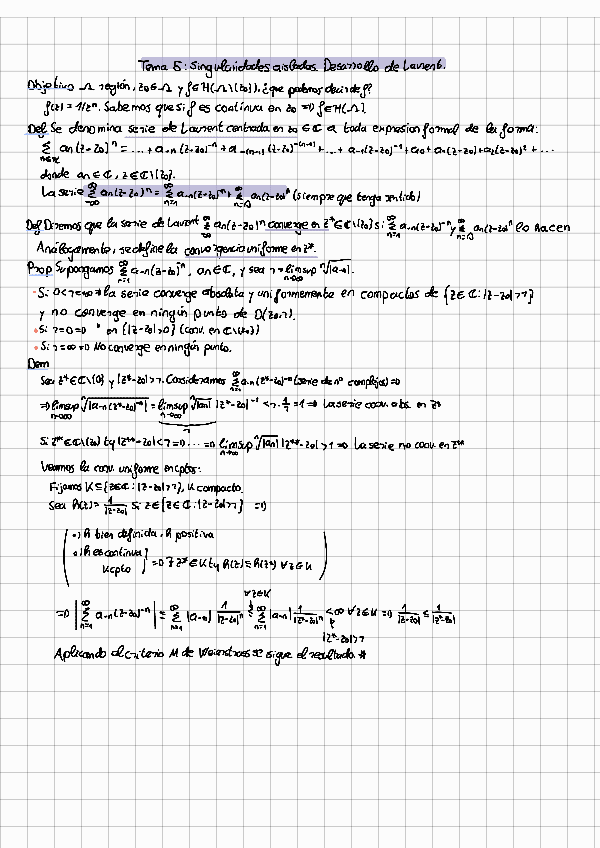 Tema 5: Singularidades aisladas. Desarrollo de Laurent.
Objetivo Ω región, z₀∈Ω y f∈H(Ω\{z₀}), ¿que podemos decir de f?
f(z) = 1/zⁿ. Sabemos que si f es continua en z₀ => f∈H(Ω).
Def Se denomina serie de Laurent centrada en z₀∈ℂ a toda expresion formal de la forma:
∑_{n∈ℤ}^{∞} aₙ(z-z₀)ⁿ = ... + a₋ₙ(z-z₀)⁻ⁿ + a₋₍ₙ₋₁₎(z-z₀)^{-(n-1)} + ... + a₋₁(z-z₀)⁻¹ + a₀ + a₁(z-z₀) + a₂(z-z₀)² + ...
donde aₙ∈ℂ, z∈ℂ\{z₀}.
La serie ∑_{-∞}^{∞} aₙ(z-z₀)ⁿ = ∑_{n=1}^{∞} a₋ₙ(z-z₀)⁻ⁿ + ∑_{n=0}^{∞} aₙ(z-z₀)ⁿ (siempre que tenga sentido)
Def Diremos que la serie de Laurent ∑_{-∞}^{∞} aₙ(z-z₀)ⁿ converge en z*∈ℂ\{z₀} si ∑_{n=1}^{∞} a₋ₙ(z-z₀)⁻ⁿ y ∑_{n=0}^{∞} aₙ(z-z₀)ⁿ lo hacen
Analogamente, se define la convergencia uniforme en z*.
Prop Supongamos ∑_{n=1}^{∞} a₋ₙ(z-z₀)⁻ⁿ, aₙ∈ℂ, y sea r = limsup_{n→∞} ⁿ√|a₋ₙ|.
· Si 0<r<∞ => la serie converge absoluta y uniformemente en compactos de {z∈ℂ: |z-z₀|>r}
y no converge en ningún punto de D(z₀,r).
· Si r=0 => " en {|z-z₀|>0} (conv. en ℂ\{z₀})
· Si r=∞ => No converge en ningún punto.
Dem
Sea z*∈ℂ\{0} y |z*-z₀|>r. Consideramos ∑_{n=1}^{∞} a₋ₙ(z*-z₀)⁻ⁿ (serie de nº complejos) =>
=> limsup_{n→∞} ⁿ√|a₋ₙ(z*-z₀)⁻ⁿ| = limsup_{n→∞} ⁿ√|aₙ| |z*-z₀|⁻¹ < r·1/r = 1 => La serie conv. abs. en z*
r
Si z**∈ℂ\{z₀} tq |z**-z₀|<r => ... => limsup_{n→∞} ⁿ√|aₙ| |z**-z₀| > 1 => La serie no conv. en z**
Veamos la conv. uniforme en cptos:
Fijamos K⊆{z∈ℂ: |z-z₀|>r}, K compacto.
Sea h(z) = 1/|z-z₀| si z∈{z∈ℂ: |z-z₀|>r} =>
·) h bien definida, h positiva
·) h es continua
K cpto } => ∃ z*∈K tq h(z)≤h(z*) ∀z∈K
∀z∈K
=> |∑_{n=1}^{∞} a₋ₙ(z-z₀)⁻ⁿ| ≤ ∑_{n=1}^{∞} |a₋ₙ| 1/|z-z₀|ⁿ ≤ ∑_{n=1}^{∞} |a₋ₙ| 1/|z*-z₀|ⁿ < ∞ ∀z∈K => 1/|z-z₀| ≤ 1/|z*-z₀|
|z*-z₀|>r
Aplicando el criterio M de Weierstrass se sigue el resultado. #